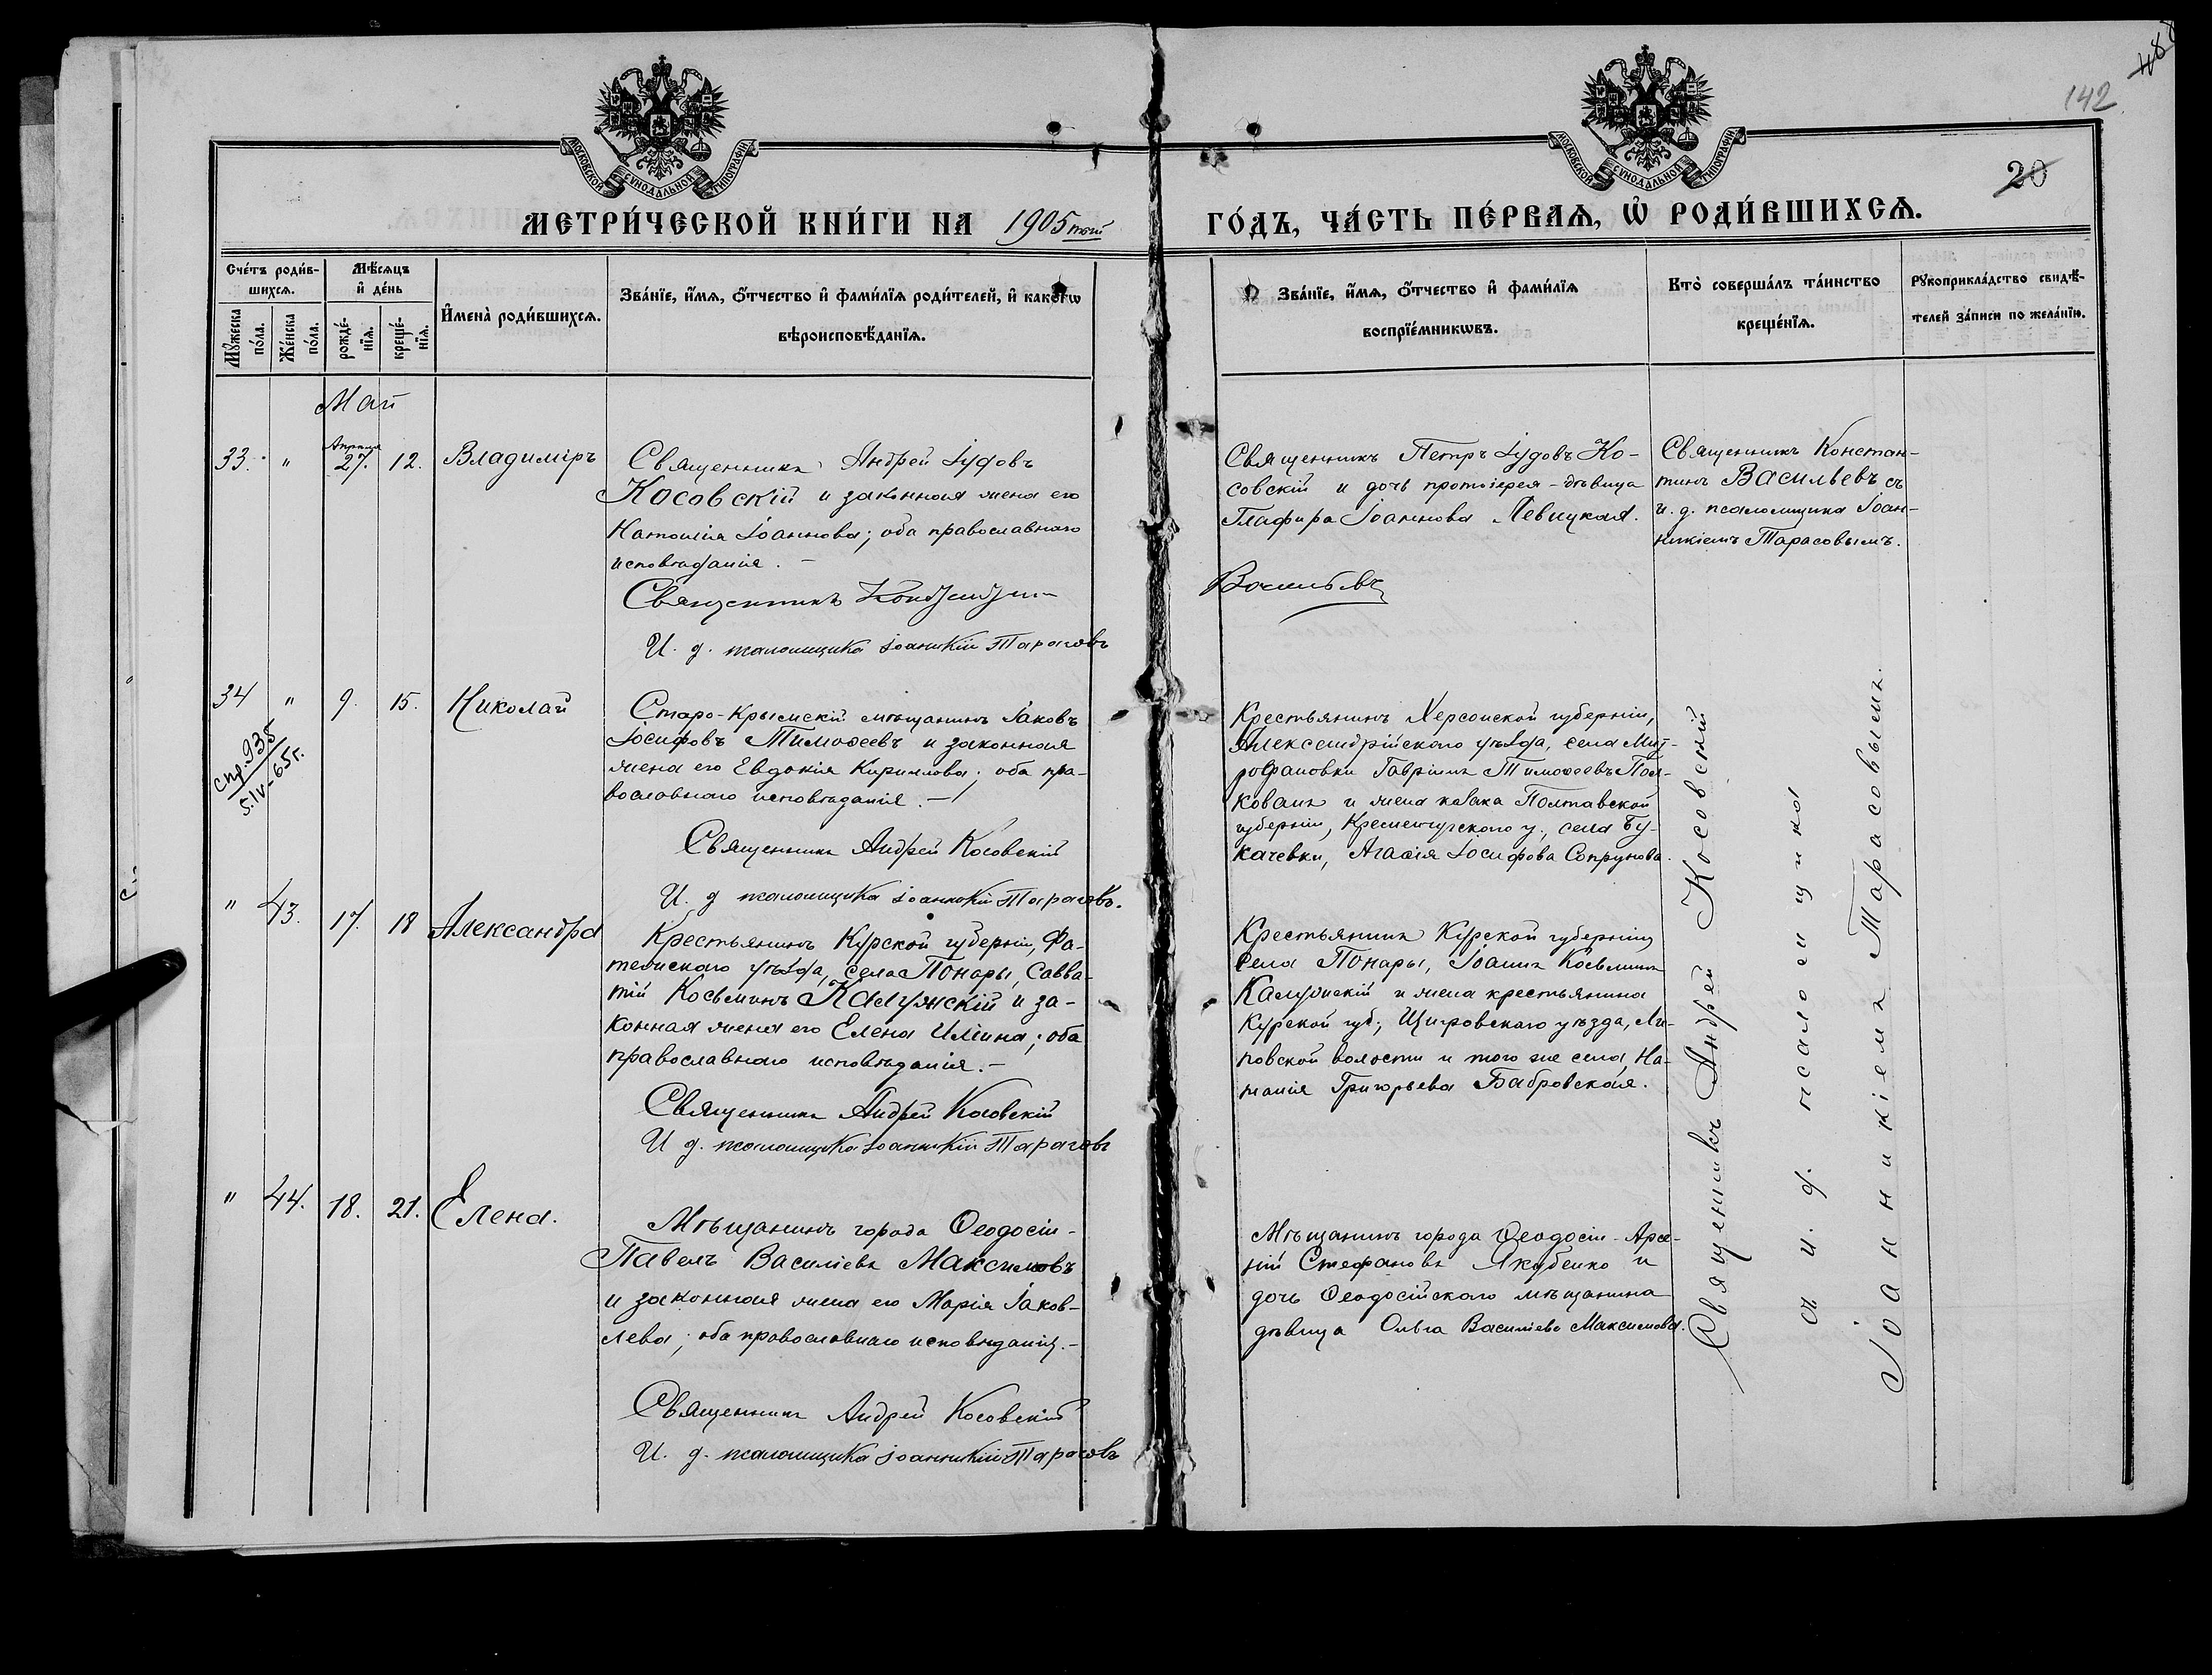 142
20
МОСКОВСКОЙ СѴНОДАЛЬНОЙ ТИПОГРАФІИ
МОСКОВСКОЙ СѴНОДАЛЬНОЙ ТИПОГРАФІИ
МЕТРИ́ЧЕСКОЙ КНИ́ГИ НА 1905 тый ГО́ДЪ, ЧА́СТЬ ПЕ́РВАѦ, Ѡ҆ РОДИ́ВШИХСѦ.
Сче́тъ роди́в-
шихсѧ.
Мѣ́сѧцъ
и҆ де́нь
Мꙋ́жеска по́ла.
Же́нска по́ла.
рожде́-
нїѧ.
креще́-
нїѧ.
И҆мена̀ роди́вшихсѧ.
Зва́нїе, и҆́мѧ, ѻ҆́тчество и҆ фами́лїѧ роди́телей, и҆ како́гѡ
вѣроисповѣ́данїѧ.
Зва́нїе, и҆́мѧ, ѻ҆́тчество и҆ фами́лїѧ
воспрїе́мникѡвъ.
Кто̀ соверша́лъ та́инство
креще́нїѧ.
Рꙋкоприкла́дство свидѣ́-
телей за́писи по жела́нїю.
Май
33. " Апрѣля 27. 12. Владиміръ
Священникъ Андрей Іудовъ
Косовскій и законная жена его
Наталія Іоаннова; оба православнаго
исповѣданія. –
Священникъ Константинъ Васильевъ
И. д. псаломщика Іоанникій Тарасовъ
Священникъ Петръ Іудовъ Ко-
совскій и дочь протоіерея – дѣвица
Глафира Іоаннова Левицкая.
Священникъ Констан-
тинъ Васильевъ съ
и. д. псаломщика Іоан-
никіемъ Тарасовымъ.
34 " 9. 15. Николай
спр. 935
5.IV-65г.
Старо-Крымскій мѣщанинъ Іаковъ
Іосифовъ Тимоѳеевъ и законная
жена его Евдокія Кириллова; оба пра-
вославнаго исповѣданія. –
Священникъ Андрей Косовскій
И. д. псаломщика Іоанникій Тарасовъ.
Крестьянинъ Херсонской губерніи,
Александрійскаго уѣзда, села Мит-
рофановки Гавріилъ Тимоѳеевъ Пол-
кованъ и жена казака Полтавской
губерніи, Кременчугскаго у., села Бу-
качевки, Агаѳія Іосифова Сопрунова.
" 43. 17. 18 Александра
Крестьянинъ Курской губерніи, Фа-
тежскаго уѣзда, села Понары, Савва-
тій Косьминъ Калужскій и за-
конная жена его Елена Иліина; оба
православнаго исповѣданія. –
Священникъ Андрей Косовскій
И. д. псаломщика Іоанникій Тарасовъ
Крестьянинъ Курской губерніи
села Понары, Іоаннъ Косьминъ
Калужскій и жена крестьянина
Курской губ., Щигровскаго уѣзда, Ли-
повской волости и того же села, На-
талія Григорьева Бабровская.
" 44. 18. 21. Елена.
Мѣщанинъ города Ѳеодосіи –
Павелъ Василіевъ Максимовъ
и законная жена его Марія Іаков-
лева; оба православнаго исповѣданія. –
Священникъ Андрей Косовскій
И. д. псаломщика Іоанникій Тарасовъ
Мѣщанинъ города Ѳеодосіи – Арсе-
ній Стефановъ Якубенко и
дочь Ѳеодосійскаго мѣщанина
дѣвица Ольга Василіева Максимова.
Священникъ Андрей Косовскій
съ и. д. псаломщика
Іоанникіемъ Тарасовымъ.